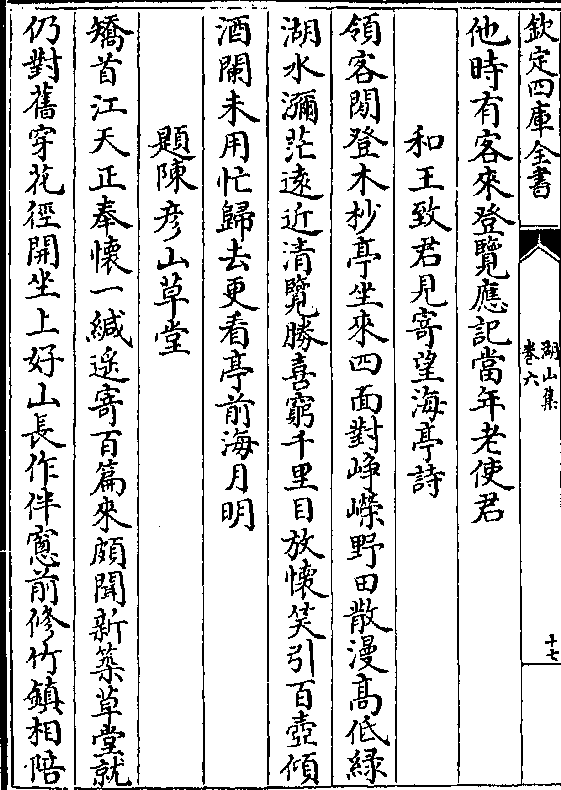 欽定四庫全書
湖山集
卷六
十七
他時有客來登覽應記當年老使君
和王致君見寄望海亭詩
領客閑登木杪亭坐來四面對崢嶸野田散漫高低緑
湖水瀰茫遠近清覽勝喜窮千里目放懷笑引百壺傾
酒闌未用忙歸去更看亭前海月明
題陳彦山草堂
矯首江天正奉懷一緘遥寄百篇來頗聞新築草堂就
仍對舊穿花徑開坐上好山長作伴窻前修竹鎮相陪